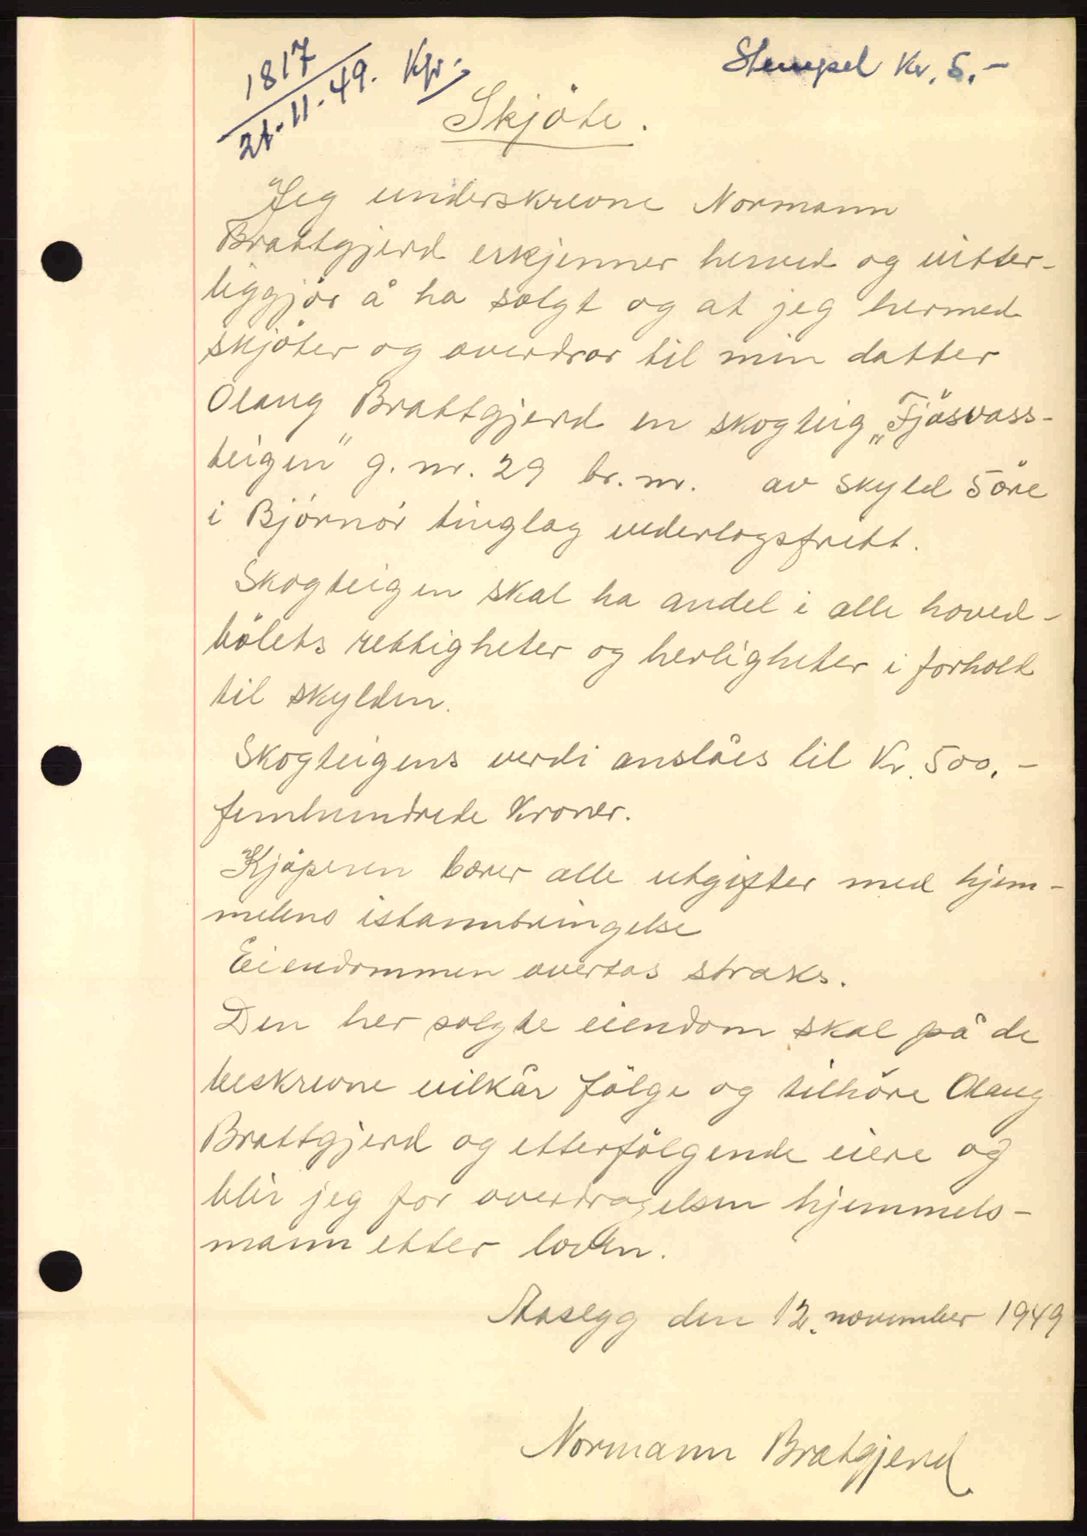 1817
21-11-49. Kfr.
Stempel Kr. 5.-
Skjöte.
Jeg underskrevne Normann
Brattgjerd erkjenner herved og vitter-
liggjör å ha solgt og at jeg hermed
skjöter og overdrar til min datter
Olaug Brattgjerd en skogteig „Fjösvass-
teigen" g. nr. 29 br. nr. av skyld 5 öre
i Björnör tinglag vederlagsfritt.
Skogteigen skal ha andel i alle hoved-
bölets rettigheter og herligheter i forhold
til skylden.
Skogteigens verdi anslåes til Kr. 500.-
femhundrede Kroner.
Kjöperen bærer alle utgifter med hjem-
melens istannbringelse
Eiendommen overtas straks.
Den her solgte eiendom skal på de
beskrevne vilkår fölge og tilhöre Olaug
Brattgjerd og etterfölgende eiere og
blir jeg for overdragelsen hjemmels-
mann etter loven.
Aasegg den 12. november 1949
Normann Bratgjerd